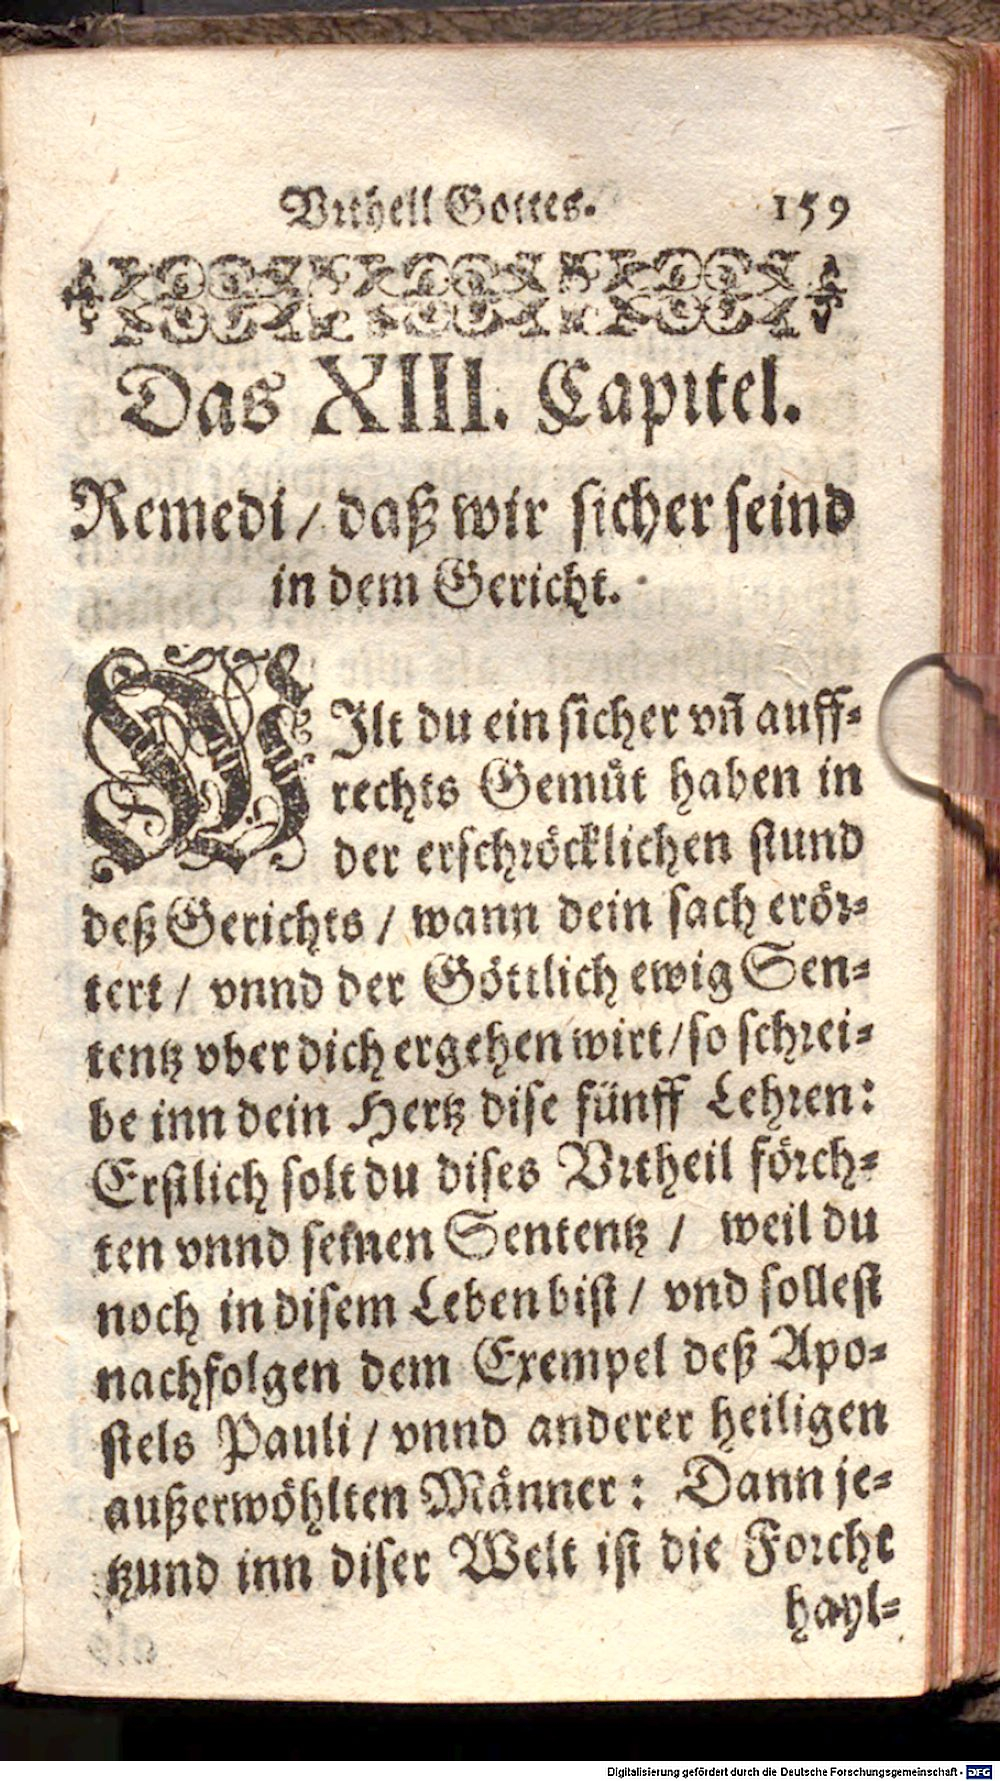 Vrtheil Gottes. 159
Das XIII. Capitel.
Remedi / daß wir sicher seind
in dem Gericht.
WIlt du ein sicher vñ auff-
rechts Gemüt haben in
der erschröcklichen stund
deß Gerichts / wann dein sach erör-
tert / vnnd der Göttlich ewig Sen-
tentz vber dich ergehen wirt / so schrei-
be inn dein Hertz dise fünff Lehren:
Erstlich solt du dises Vrtheil förch-
ten vnnd seinen Sententz / weil du
noch in disem Leben bist / vnd sollest
nachfolgen dem Exempel deß Apo-
stels Pauli / vnnd anderer heiligen
außerwöhlten Männer: Dann je-
tzund inn diser Welt ist die Forcht
hayl-
Digitalisierung gefördert durch die Deutsche Forschungsgemeinschaft - DFG